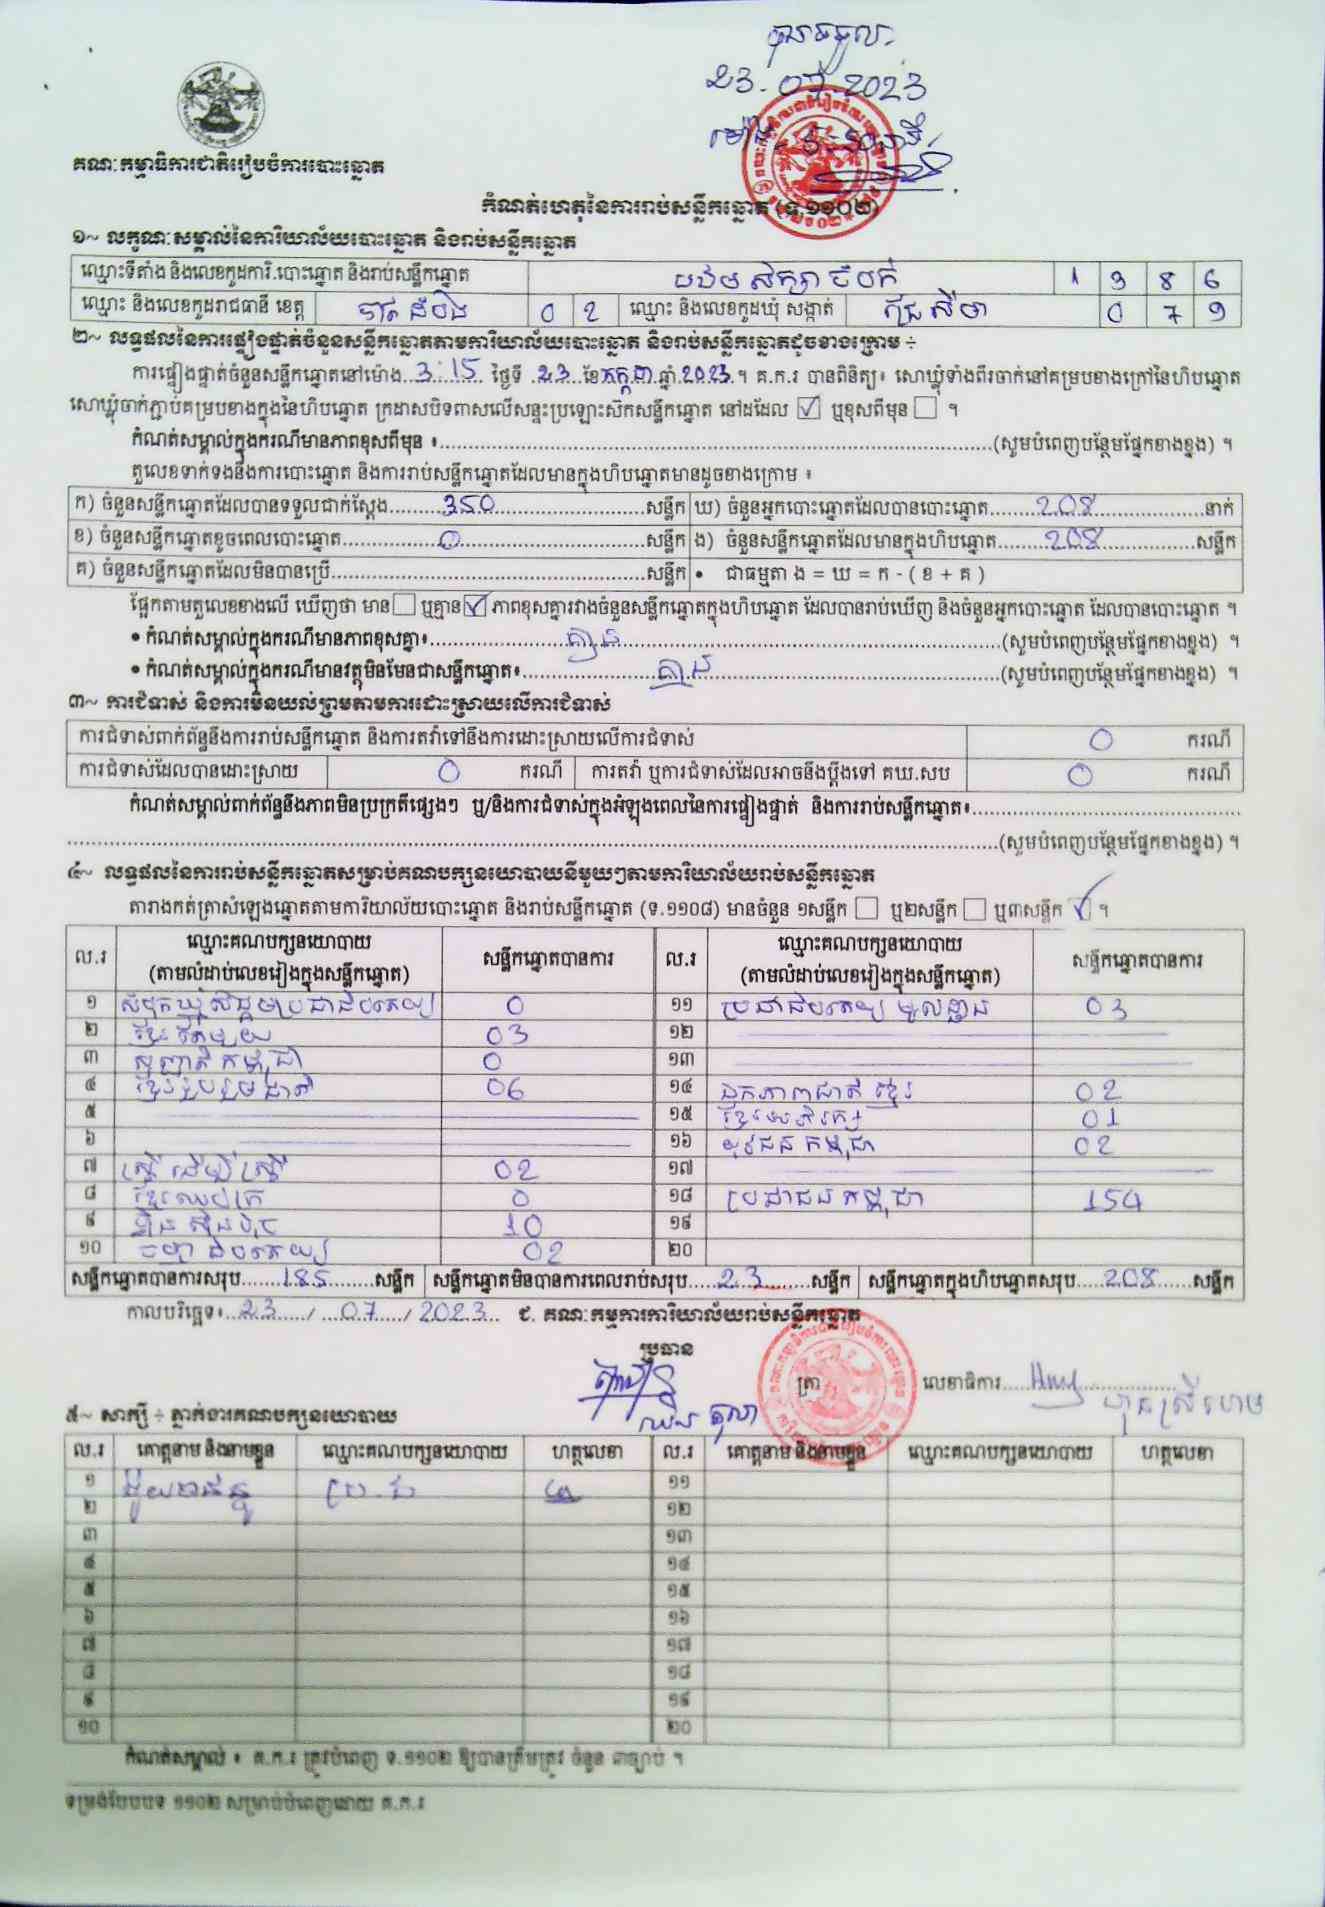 បានទទួល
23.07.2023
គណៈកម្មាធិការជាតិរៀបចំការបោះឆ្នោត
កំណត់ហេតុនៃការរាប់សន្លឹកឆ្នោត (ទ.១១០២)
១~ លក្ខណៈសម្គាល់នៃការិយាល័យបោះឆ្នោត និងរាប់សន្លឹកឆ្នោត
ឈ្មោះទីតាំង និងលេខកូដការិ.បោះឆ្នោត និងរាប់សន្លឹកឆ្នោត 1 3 8 6
ឈ្មោះ និងលេខកូដរាជធានី ខេត្ត បាត់ដំបង 0 2 ឈ្មោះ និងលេខកូដឃុំ សង្កាត់ 0 7 9
២~ លទ្ធផលនៃការផ្ទៀងផ្ទាត់ចំនួនសន្លឹកឆ្នោតតាមការិយាល័យបោះឆ្នោត និងរាប់សន្លឹកឆ្នោតដូចខាងក្រោម ÷
ការផ្ទៀងផ្ទាត់ចំនួនសន្លឹកឆ្នោតនៅម៉ោង 3:15 ថ្ងៃទី 23 ខែ កក្កដា ឆ្នាំ 2023 ។ គ.ក.រ បានពិនិត្យ៖ សោឃ្លុំទាំងពីរចាក់នៅគម្របខាងក្រៅនៃហិបឆ្នោត
សោឃ្លុំចាក់ភ្ជាប់គម្របខាងក្នុងនៃហិបឆ្នោត ក្រដាសបិទពាសលើសន្ទះប្រឡោះស៊កសន្លឹកឆ្នោត នៅដដែល ☑ ឬខុសពីមុន ☐ ។
កំណត់សម្គាល់ក្នុងករណីមានភាពខុសពីមុន ៖ (សូមបំពេញបន្ថែមផ្នែកខាងខ្នង) ។
តួលេខទាក់ទងនឹងការបោះឆ្នោត និងការរាប់សន្លឹកឆ្នោតដែលមានក្នុងហិបឆ្នោតមានដូចខាងក្រោម ៖
ក) ចំនួនសន្លឹកឆ្នោតដែលបានទទួលជាក់ស្តែង 350 សន្លឹក ឃ) ចំនួនអ្នកបោះឆ្នោតដែលបានបោះឆ្នោត 208 នាក់
ខ) ចំនួនសន្លឹកឆ្នោតខូចពេលបោះឆ្នោត 0 សន្លឹក ង) ចំនួនសន្លឹកឆ្នោតដែលមានក្នុងហិបឆ្នោត 208 សន្លឹក
គ) ចំនួនសន្លឹកឆ្នោតដែលមិនបានប្រើ សន្លឹក • ជាធម្មតា ង = ឃ = ក - ( ខ + គ )
ផ្អែកតាមតួលេខខាងលើ ឃើញថា មាន ☐ ឬគ្មាន ☑ ភាពខុសគ្នារវាងចំនួនសន្លឹកឆ្នោតក្នុងហិបឆ្នោត ដែលបានរាប់ឃើញ និងចំនួនអ្នកបោះឆ្នោត ដែលបានបោះឆ្នោត ។
• កំណត់សម្គាល់ក្នុងករណីមានភាពខុសគ្នា៖ គ្មាន (សូមបំពេញបន្ថែមផ្នែកខាងខ្នង) ។
• កំណត់សម្គាល់ក្នុងករណីមានវត្ថុមិនមែនជាសន្លឹកឆ្នោត៖ គ្មាន (សូមបំពេញបន្ថែមផ្នែកខាងខ្នង) ។
៣~ ការជំទាស់ និងការមិនយល់ព្រមតាមការដោះស្រាយលើការជំទាស់
ការជំទាស់ពាក់ព័ន្ធនឹងការរាប់សន្លឹកឆ្នោត និងការតវ៉ាទៅនឹងការដោះស្រាយលើការជំទាស់ 0 ករណី
ការជំទាស់ដែលបានដោះស្រាយ 0 ករណី ការតវ៉ា ឬការជំទាស់ដែលអាចនឹងប្តឹងទៅ គឃ.សប 0 ករណី
កំណត់សម្គាល់ពាក់ព័ន្ធនឹងភាពមិនប្រក្រតីផ្សេងៗ ឬ/និងការជំទាស់ក្នុងអំឡុងពេលនៃការផ្ទៀងផ្ទាត់ និងការរាប់សន្លឹកឆ្នោត៖
(សូមបំពេញបន្ថែមផ្នែកខាងខ្នង) ។
៤~ លទ្ធផលនៃការរាប់សន្លឹកឆ្នោតសម្រាប់គណបក្សនយោបាយនីមួយៗតាមការិយាល័យរាប់សន្លឹកឆ្នោត
តារាងកត់ត្រាសំឡេងឆ្នោតតាមការិយាល័យបោះឆ្នោត និងរាប់សន្លឹកឆ្នោត (ទ.១១០៨) មានចំនួន ១សន្លឹក ☐ ឬ២សន្លឹក ☐ ឬ៣សន្លឹក ☑ ។
ល.រ ឈ្មោះគណបក្សនយោបាយ (តាមលំដាប់លេខរៀងក្នុងសន្លឹកឆ្នោត) សន្លឹកឆ្នោតបានការ ល.រ ឈ្មោះគណបក្សនយោបាយ (តាមលំដាប់លេខរៀងក្នុងសន្លឹកឆ្នោត) សន្លឹកឆ្នោតបានការ
១ សំបុកឃ្មុំសង្គមប្រជាធិបតេយ្យ 0 ១១ ប្រជាធិបតេយ្យមូលដ្ឋាន 03
២ ខ្មែរតែមួយ 03 ១២
៣ សញ្ជាតិកម្ពុជា 0 ១៣
៤ ខ្មែររួបរួមជាតិ 06 ១៤ ឯកភាពជាតិខ្មែរ 02
៥ ១៥ ខ្មែរអភិរក្ស 01
៦ ១៦ យុវជនកម្ពុជា 02
៧ ស្ត្រីដើម្បីស្ត្រី 02 ១៧
៨ ខ្មែរឈប់ក្រ 0 ១៨ ប្រជាជនកម្ពុជា 154
៩ ហ្វ៊ុនស៊ិនប៉ិច 10 ១៩
១០ ធម្មាធិបតេយ្យ 02 ២០
សន្លឹកឆ្នោតបានការសរុប 185 សន្លឹក សន្លឹកឆ្នោតមិនបានការពេលរាប់សរុប 23 សន្លឹក សន្លឹកឆ្នោតក្នុងហិបឆ្នោតសរុប 208 សន្លឹក
កាលបរិច្ឆេទ៖ 23 / 07 / 2023 ជ. គណៈកម្មការការិយាល័យរាប់សន្លឹកឆ្នោត
ប្រធាន
ត្រា លេខាធិការ
៥~ សាក្សី ÷ ភ្នាក់ងារគណបក្សនយោបាយ
ល.រ គោត្តនាម និងនាមខ្លួន ឈ្មោះគណបក្សនយោបាយ ហត្ថលេខា ល.រ គោត្តនាម និងនាមខ្លួន ឈ្មោះគណបក្សនយោបាយ ហត្ថលេខា
១ ១១
២ ១២
៣ ១៣
៤ ១៤
៥ ១៥
៦ ១៦
៧ ១៧
៨ ១៨
៩ ១៩
១០ ២០
កំណត់សម្គាល់ ៖ គ.ក.រ ត្រូវបំពេញ ទ.១១០២ ឱ្យបានត្រឹមត្រូវ ចំនួន ៣ច្បាប់ ។
ទម្រង់បែបបទ ១១០២ សម្រាប់បំពេញដោយ គ.ក.រ